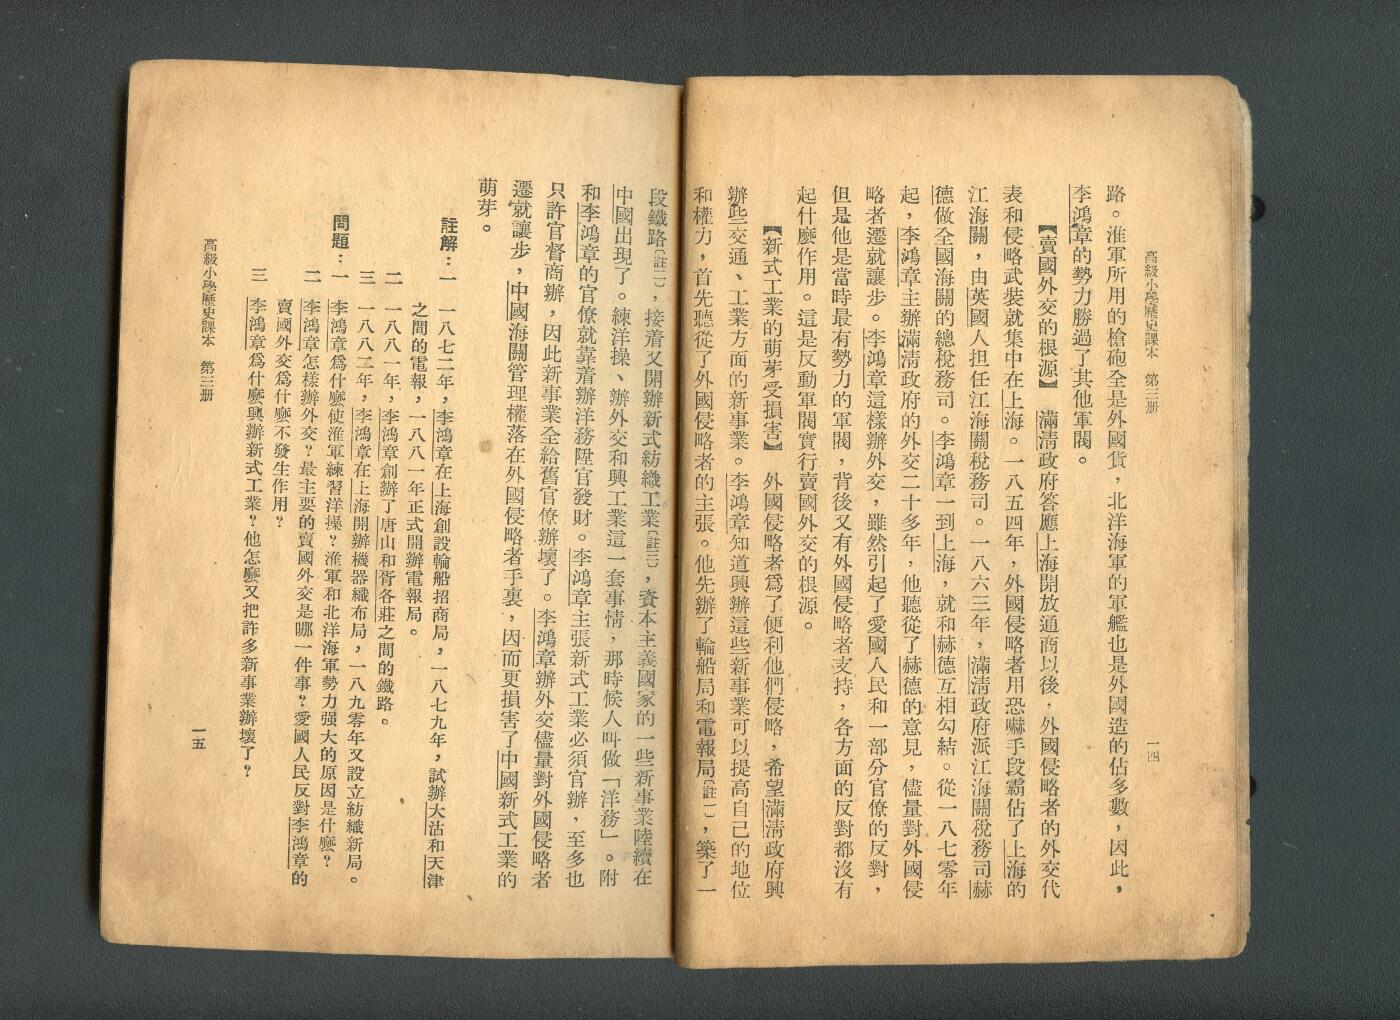 高級小學歷史課本　第三册
一四
路。淮軍所用的槍砲全是外國貨，北洋海軍的軍艦也是外國造的佔多數，因此，
李鴻章的勢力勝過了其他軍閥。
【賣國外交的根源】　滿清政府答應上海開放通商以後，外國侵略者的外交代
表和侵略武裝就集中在上海。一八五四年，外國侵略者用恐嚇手段霸佔了上海的
江海關，由英國人担任江海關稅務司。一八六三年，滿清政府派江海關稅務司赫
德做全國海關的總稅務司。李鴻章一到上海，就和赫德互相勾結。從一八七零年
起，李鴻章主辦滿清政府的外交二十多年，他聽從了赫德的意見，儘量對外國侵
略者遷就讓步。李鴻章這樣辦外交，雖然引起了愛國人民和一部分官僚的反對，
但是他是當時最有勢力的軍閥，背後又有外國侵略者支持，各方面的反對都沒有
起什麼作用。這是反動軍閥實行賣國外交的根源。
【新式工業的萌芽受損害】　外國侵略者爲了便利他們侵略，希望滿清政府興
辦些交通、工業方面的新事業。李鴻章知道興辦這些新事業可以提高自己的地位
和權力，首先聽從了外國侵略者的主張。他先辦了輪船局和電報局〔註一〕，築了一
段鐵路〔註二〕，接着又開辦新式紡織工業〔註三〕，資本主義國家的一些新事業陸續在
中國出現了。練洋操、辦外交和興工業這一套事情，那時候人叫做「洋務」。附
和李鴻章的官僚就靠着辦洋務陞官發財。李鴻章主張新式工業必須官辦，至多也
只許官督商辦，因此新事業全給舊官僚辦壞了。李鴻章辦外交儘量對外國侵略者
遷就讓步，中國海關管理權落在外國侵略者手裏，因而更損害了中國新式工業的
萌芽。
註解：一　一八七二年，李鴻章在上海創設輪船招商局，一八七九年，試辦大沽和天津
之間的電報，一八八一年正式開辦電報局。
二　一八八一年，李鴻章創辦了唐山和胥各莊之間的鐵路。
三　一八八二年，李鴻章在上海開辦機器織布局，一八九零年又設立紡織新局。
問題：一　李鴻章爲什麼使淮軍練習洋操？淮軍和北洋海軍勢力强大的原因是什麼？
二　李鴻章怎樣辦外交？最主要的賣國外交是哪一件事？愛國人民反對李鴻章的
賣國外交爲什麼不發生作用？
三　李鴻章爲什麼興辦新式工業？他怎麼又把許多新事業辦壞了？
高級小學歷史課本　第三册
一五